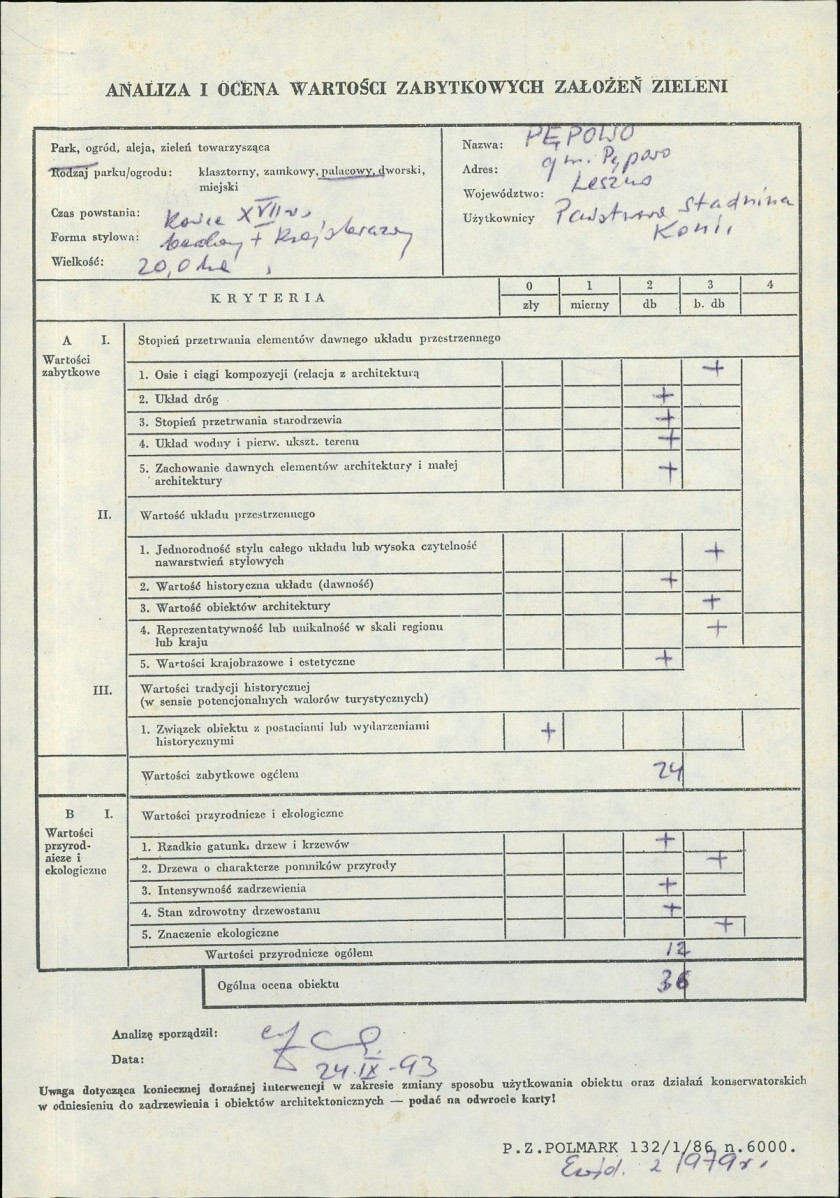 ANALIZA I OCENA WARTOŚCI ZABYTKOWYCH ZAŁOŻEŃ ZIELENI
Park, ogród, aleja, zieleń towarzysząca
Rodzaj parku/ogrodu: klasztorny, zamkowy, pałacowy, dworski,
miejski
Czas powstania: Koniec XVII w.
Forma stylowa: barokowy + krajobrazowy
Wielkość: 20,0 ha
Nazwa: PĘPOWO
Adres: gm. Pępowo
Województwo: Leszno
Użytkownicy Państwowa Stadnina
Koni
KRYTERIA
0 1 2 3 4
zły mierny db b. db
A I. Stopień przetrwania elementów dawnego układu przestrzennego
Wartości
zabytkowe
1. Osie i ciągi kompozycji (relacja z architekturą +
2. Układ dróg +
3. Stopień przetrwania starodrzewia +
4. Układ wodny i pierw. ukszt. terenu +
5. Zachowanie dawnych elementów architektury i małej
architektury +
II. Wartość układu przestrzennego
1. Jednorodność stylu całego układu lub wysoka czytelność
nawarstwień stylowych +
2. Wartość historyczna układu (dawność) +
3. Wartość obiektów architektury +
4. Reprezentatywność lub unikalność w skali regionu
lub kraju +
5. Wartości krajobrazowe i estetyczne +
III. Wartości tradycji historycznej
(w sensie potencjonalnych walorów turystycznych)
1. Związek obiektu z postaciami lub wydarzeniami
historycznymi +
Wartości zabytkowe ogółem 24
B I. Wartości przyrodnicze i ekologiczne
Wartości
przyrod-
nicze i
ekologiczne
1. Rzadkie gatunki drzew i krzewów +
2. Drzewa o charakterze pomników przyrody +
3. Intensywność zadrzewienia +
4. Stan zdrowotny drzewostanu +
5. Znaczenie ekologiczne +
Wartości przyrodnicze ogółem 12
Ogólna ocena obiektu 36
Analizę sporządził:
Data: 24.IX.-93
Uwaga dotycząca koniecznej doraźnej interwencji w zakresie zmiany sposobu użytkowania obiektu oraz działań konserwatorskich
w odniesieniu do zadrzewienia i obiektów architektonicznych — podać na odwrocie karty!
P.Z.POLMARK 132/1/86 n.6000.
Ewid. z 1979 r.